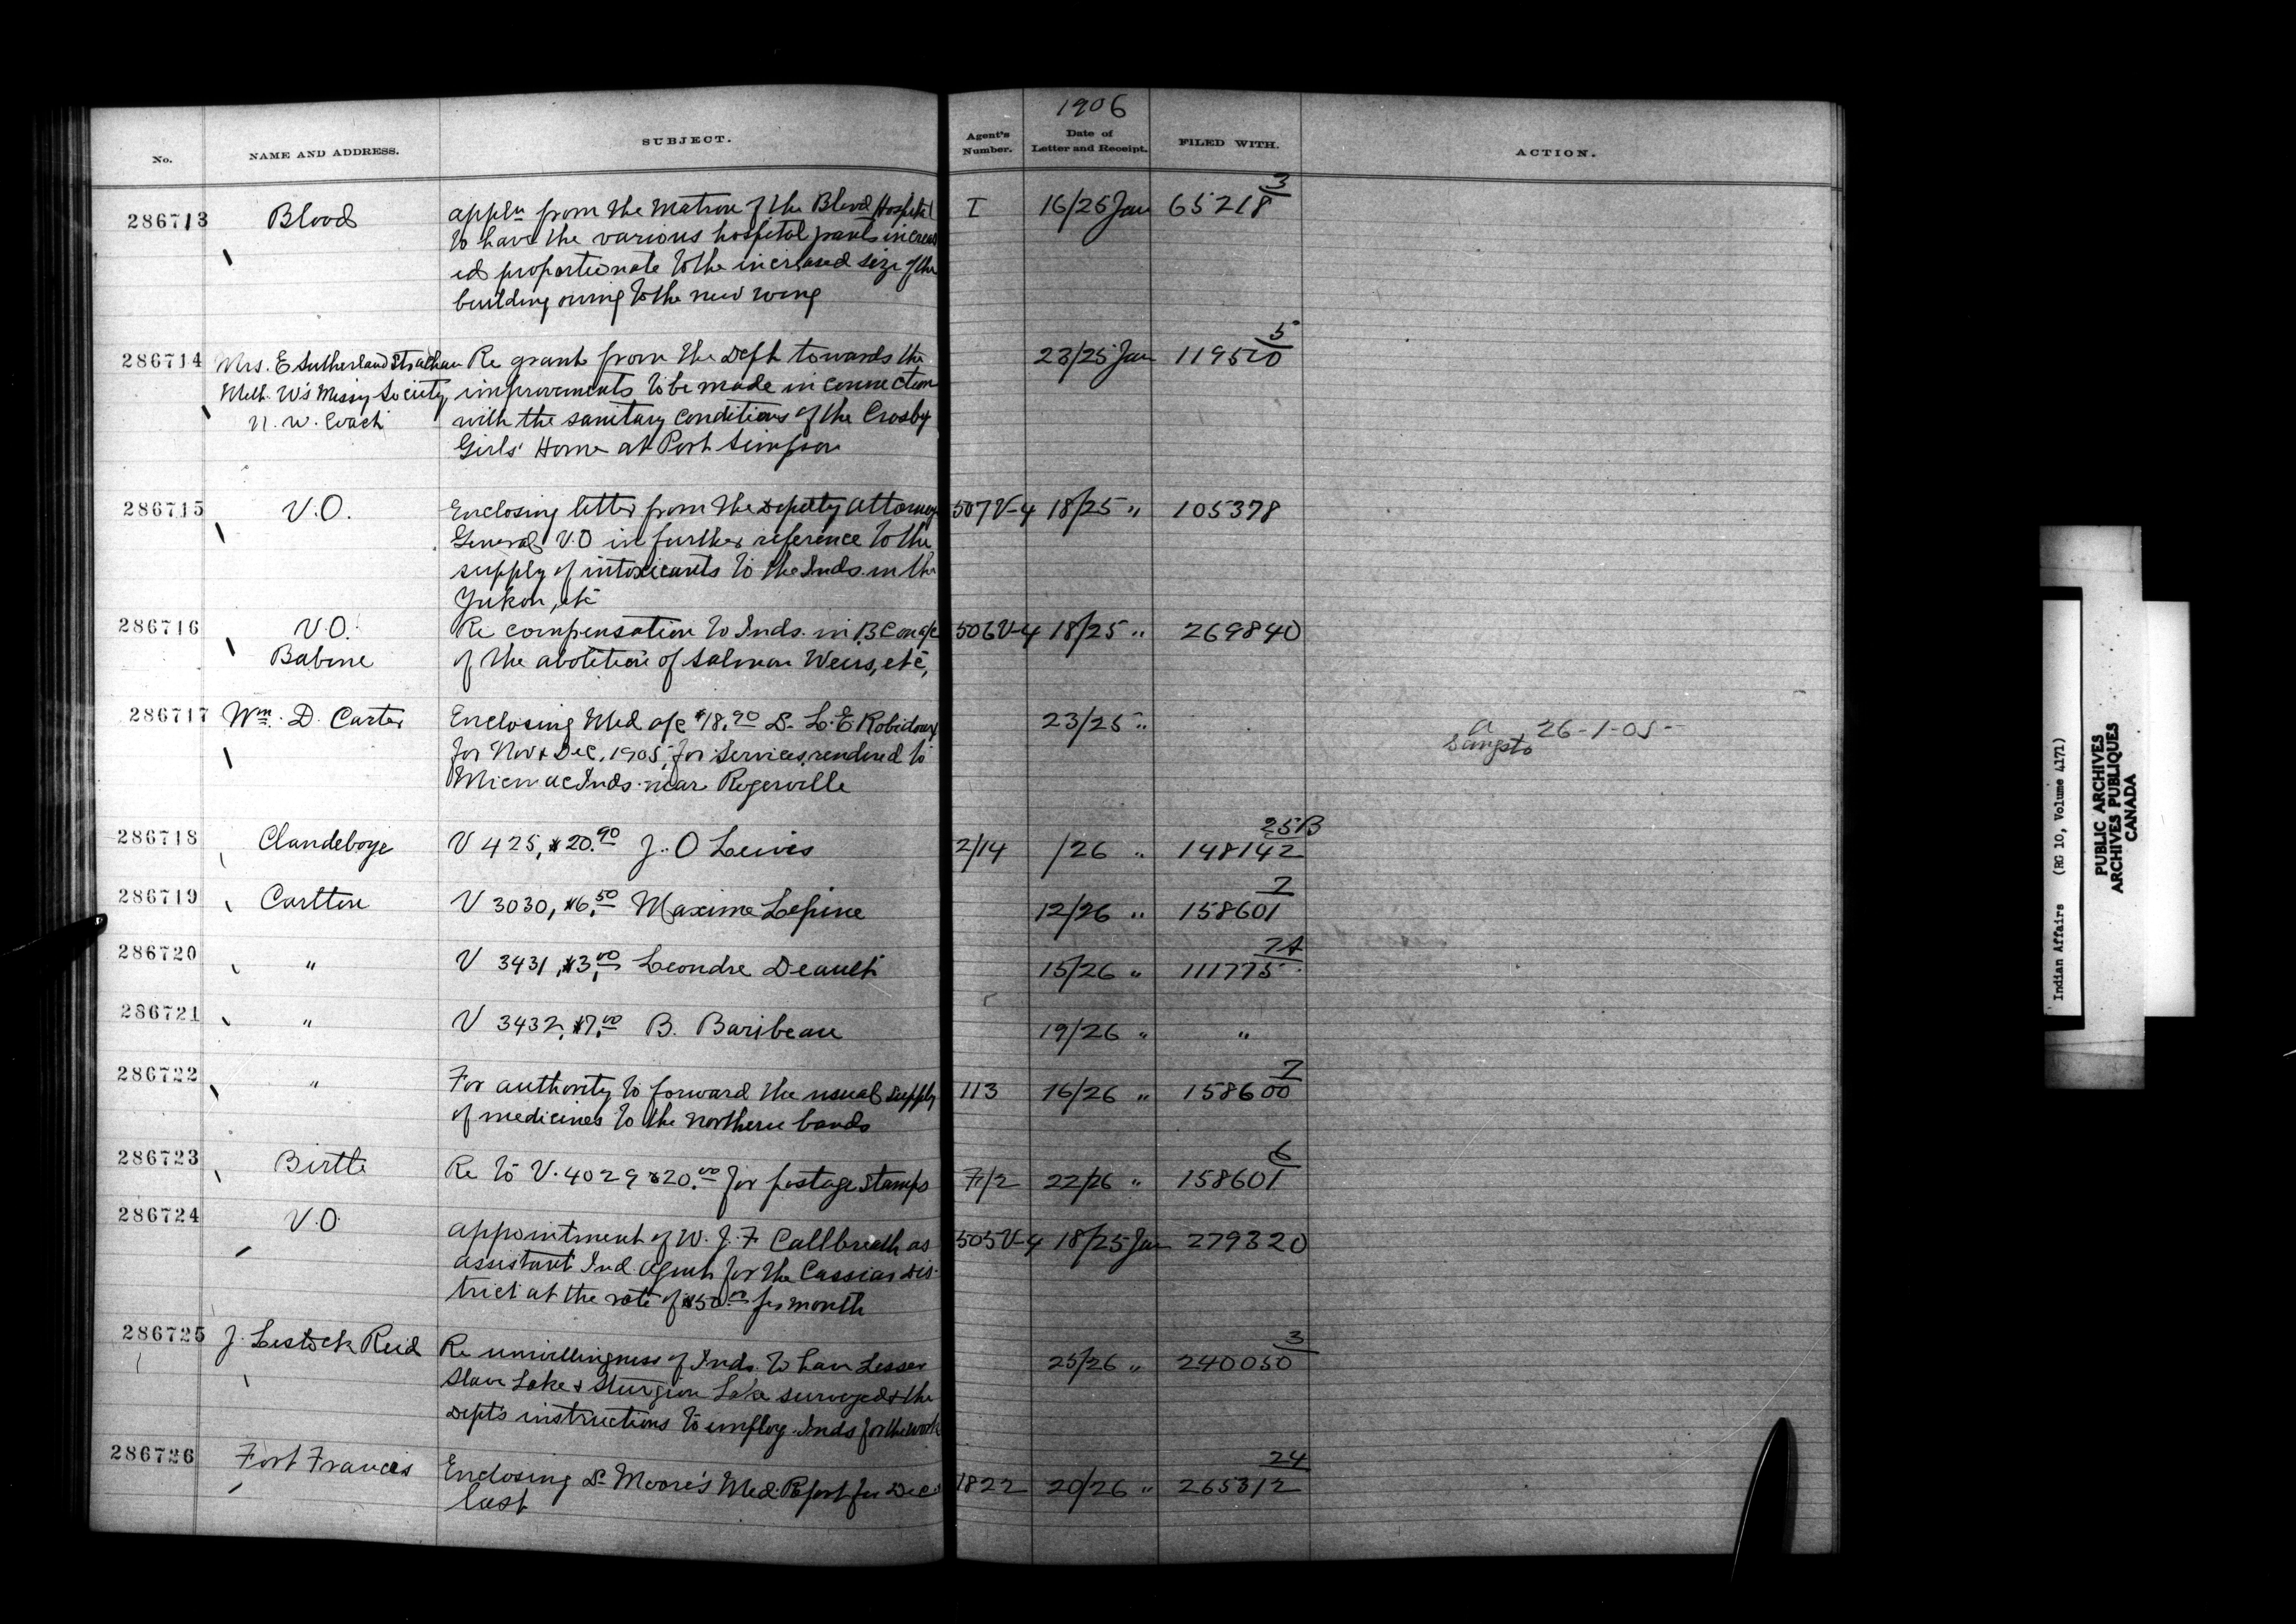 1906
No. NAME AND ADDRESS. SUBJECT. Agent's Number. Date of Letter and Receipt. FILED WITH. ACTION.
286713 Blood appln from the Matron of the Blood Hospital I 16/25 Jan 65218 3
to have the various hospital increas
ed proportionate to the increased size of the
building owing to the new wing
286714 Mrs. E Sutherland Strachan Re grant from the Dept towards the 23/25 Jan 119510 5
Meth. W's Missy Society improvements to be made in connection
N. W. with the sanitary conditions of the Crosby
Girls' Home at Port Simpson
286715 V.O. Enclosing letter from the Deputy Attorney 507V-4 18/25 " 105378
General V.O in further reference to the
supply of intoxicants to the Inds. in the
Yukon, etc
286716 V.O. Re compensation to Inds. in B.C on a/c 506V-4 18/25 " 269840
Babine of the abolition of Salmon Weirs, etc,
286717 Wm. D. Carter Enclosing Med a/c $18.90 Dr. L. E Robidoux 23/25 " a 26-1-05
for Nov & Dec. 1905, for services rendered to
Micmac Inds. near Rogerville
286718 Clandeboye V 425, $20.90 J. O Lewis 2/14 /26 " 148142 25B
286719 Carlton V 3030, $6.50 Maxime Lepine 12/26 " 158601 7
286720 " V 3431, $3.00 Leondre Deault 15/26 " 111775 7A
286721 " V 3432, $7.00 B. Baribeau 19/26 " "
286722 " For authority to forward the usual supply 113 16/26 " 158600 7
of medicines to the northern bands
286723 Birtle Re to V. 4029 $20.00 for postage stamps 7/2 22/26 " 158601 6
286724 V.O. appointment of W. J. F Callbreath as 505V-4 18/25 Jan 279320
assistant Ind. Agent for the Cassiar Dis-
trict at the rate of $50.00 per month
286725 J. Lestock Reid Re unwillingness of Inds. to have Lesser 25/26 " 240050 3
Slave Lake & Sturgeon Lake surveyed & the
Dept's instructions to employ Inds for the work
286726 Fort Frances Enclosing Dr Moore's Med. Report for Dec 1822 20/26 " 265312 24
last
Indian Affairs (RG 10, Volume 4171)
PUBLIC ARCHIVES
ARCHIVES PUBLIQUES
CANADA